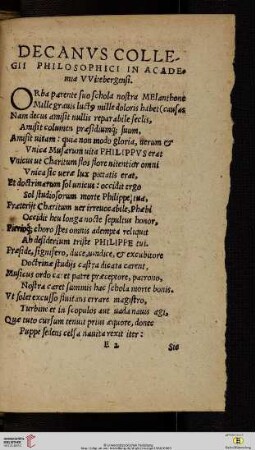 DECANVS COLLE-
GII PHILOSOPHICI IN ACADE-
mia VVitebergensi.
ORba parente suo schola nostra MElanthone
Mille grauis luctu mille doloris habet causas
Nam decus amisit nullis reparabile seclis,
Amisit columen præsidiumq; suum,
Amisit vitam: quia non modo gloria, uerum &
Vnica Musarum uita PHILIPPVS erat
Vnicus ut Charitum flos flore nitentior omni
Vnica sic uera lux pietatis erat,
Et doctrinarum sol unicus: occidit ergo
Sol studiosorum morte Philippe tua.
Præterijt Charitum uer irreuocabile, Phœbi
Occidit heu longa nocte sepultus honor,
Pieriæq; choro spes omnis adempta reliquit
Ah desiderium triste PHILIPPE tui.
Præside, signifero, duce, uindice, & excubitore
Doctrinæ studijs castra dicata carent,
Musicus ordo caret patre præceptore, patrono,
Nostra caret summis hac schola morte bonis.
Vt solet excusso fluitans errare magistro,
Turbine et in scopulos aut uada nauis agi,
Quæ tuto cursum tenuit prius æquore, donec
Puppe sedens celsa nauita rexit iter:
E 2 Sic